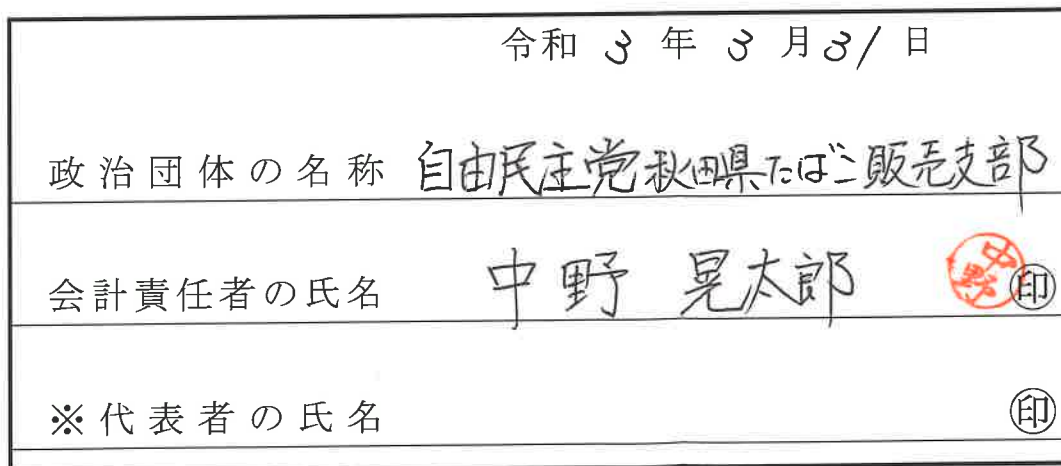 令和 3 年 3 月 31 日
政治団体の名称 自由民主党秋田県たばこ販売支部
会計責任者の氏名 中野 晃太郎 中野 ㊞
※代表者の氏名 ㊞